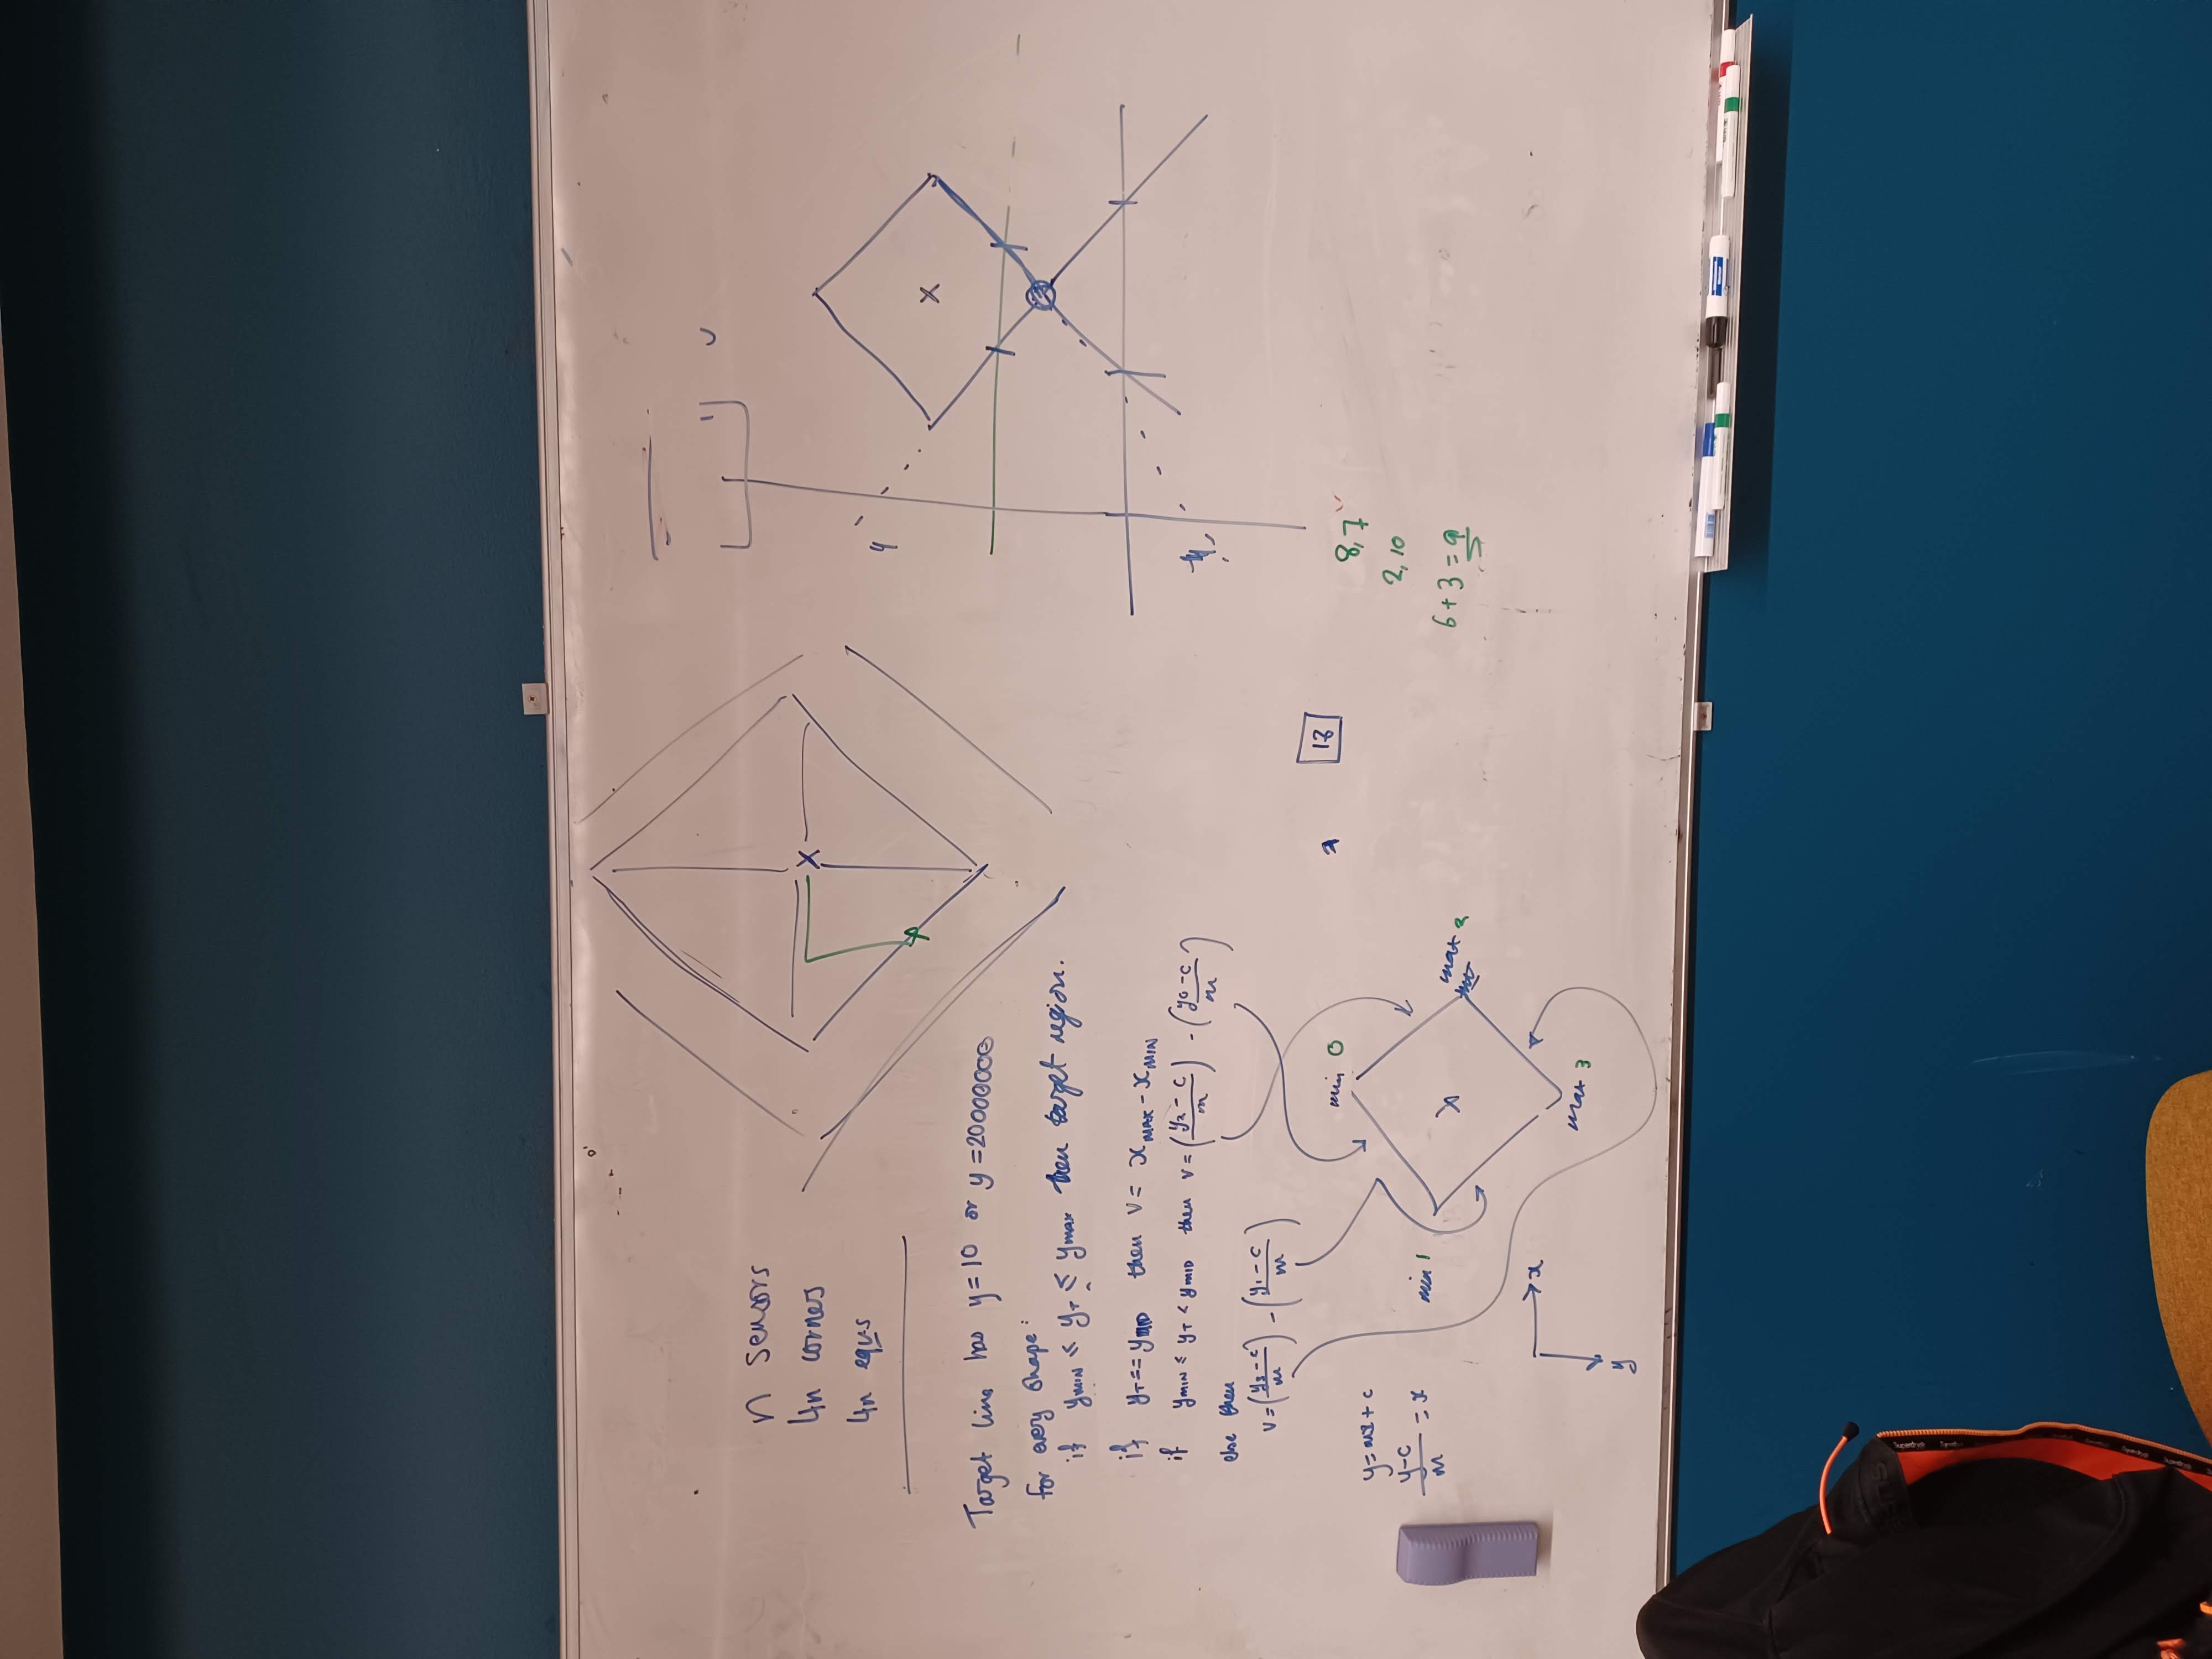 n sensors
4n corners
4n equs
Target line has y=10 or y=20000000
for every shape:
if yMIN ≤ yT ≤ yMAX then target region.
if yT == yMID then V = xMAX - xMIN
if yMIN ≤ yT < yMID then V = (y2 - c / m) - (y0 - c / m)
else then
V = (y3 - c / m) - (y1 - c / m)
y = mx + c
y - c / m = x
min 0
min 1
max 2
max 3
x
y
X
X
X
8,7
2,10
6 + 3 = 9